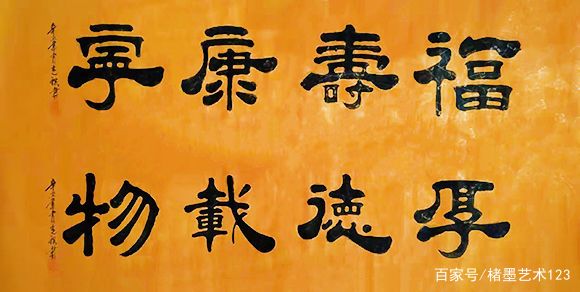 福壽康寧
厚德載物
百家号/楮墨艺术123